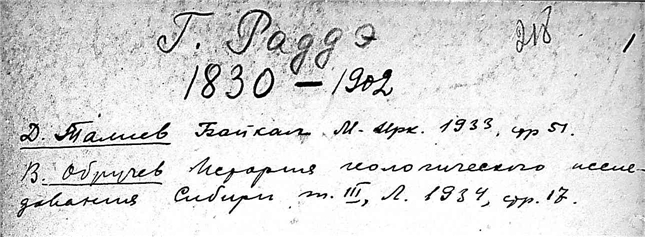 Г. Раддэ 218 1
1830 – 1902
Д. Талиев Байкал М.-Ирк. 1933, стр 51.
В. Обручев История геологического иссле-
дования Сибири т. III, Л. 1934, стр. 17.